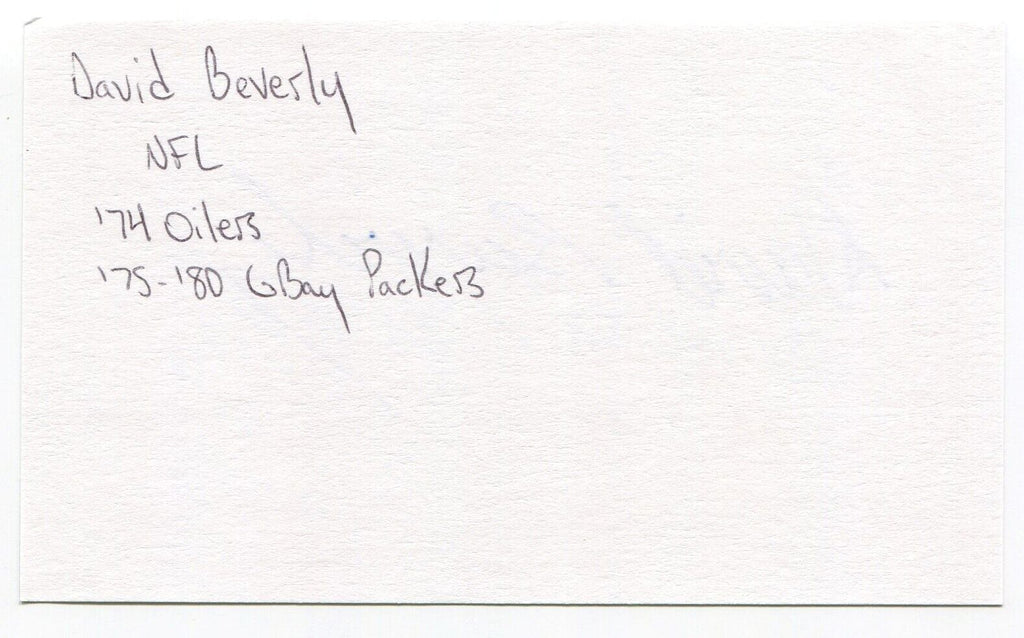 David Beverly
NFL
'74 Oilers
'75-'80 GBay Packers